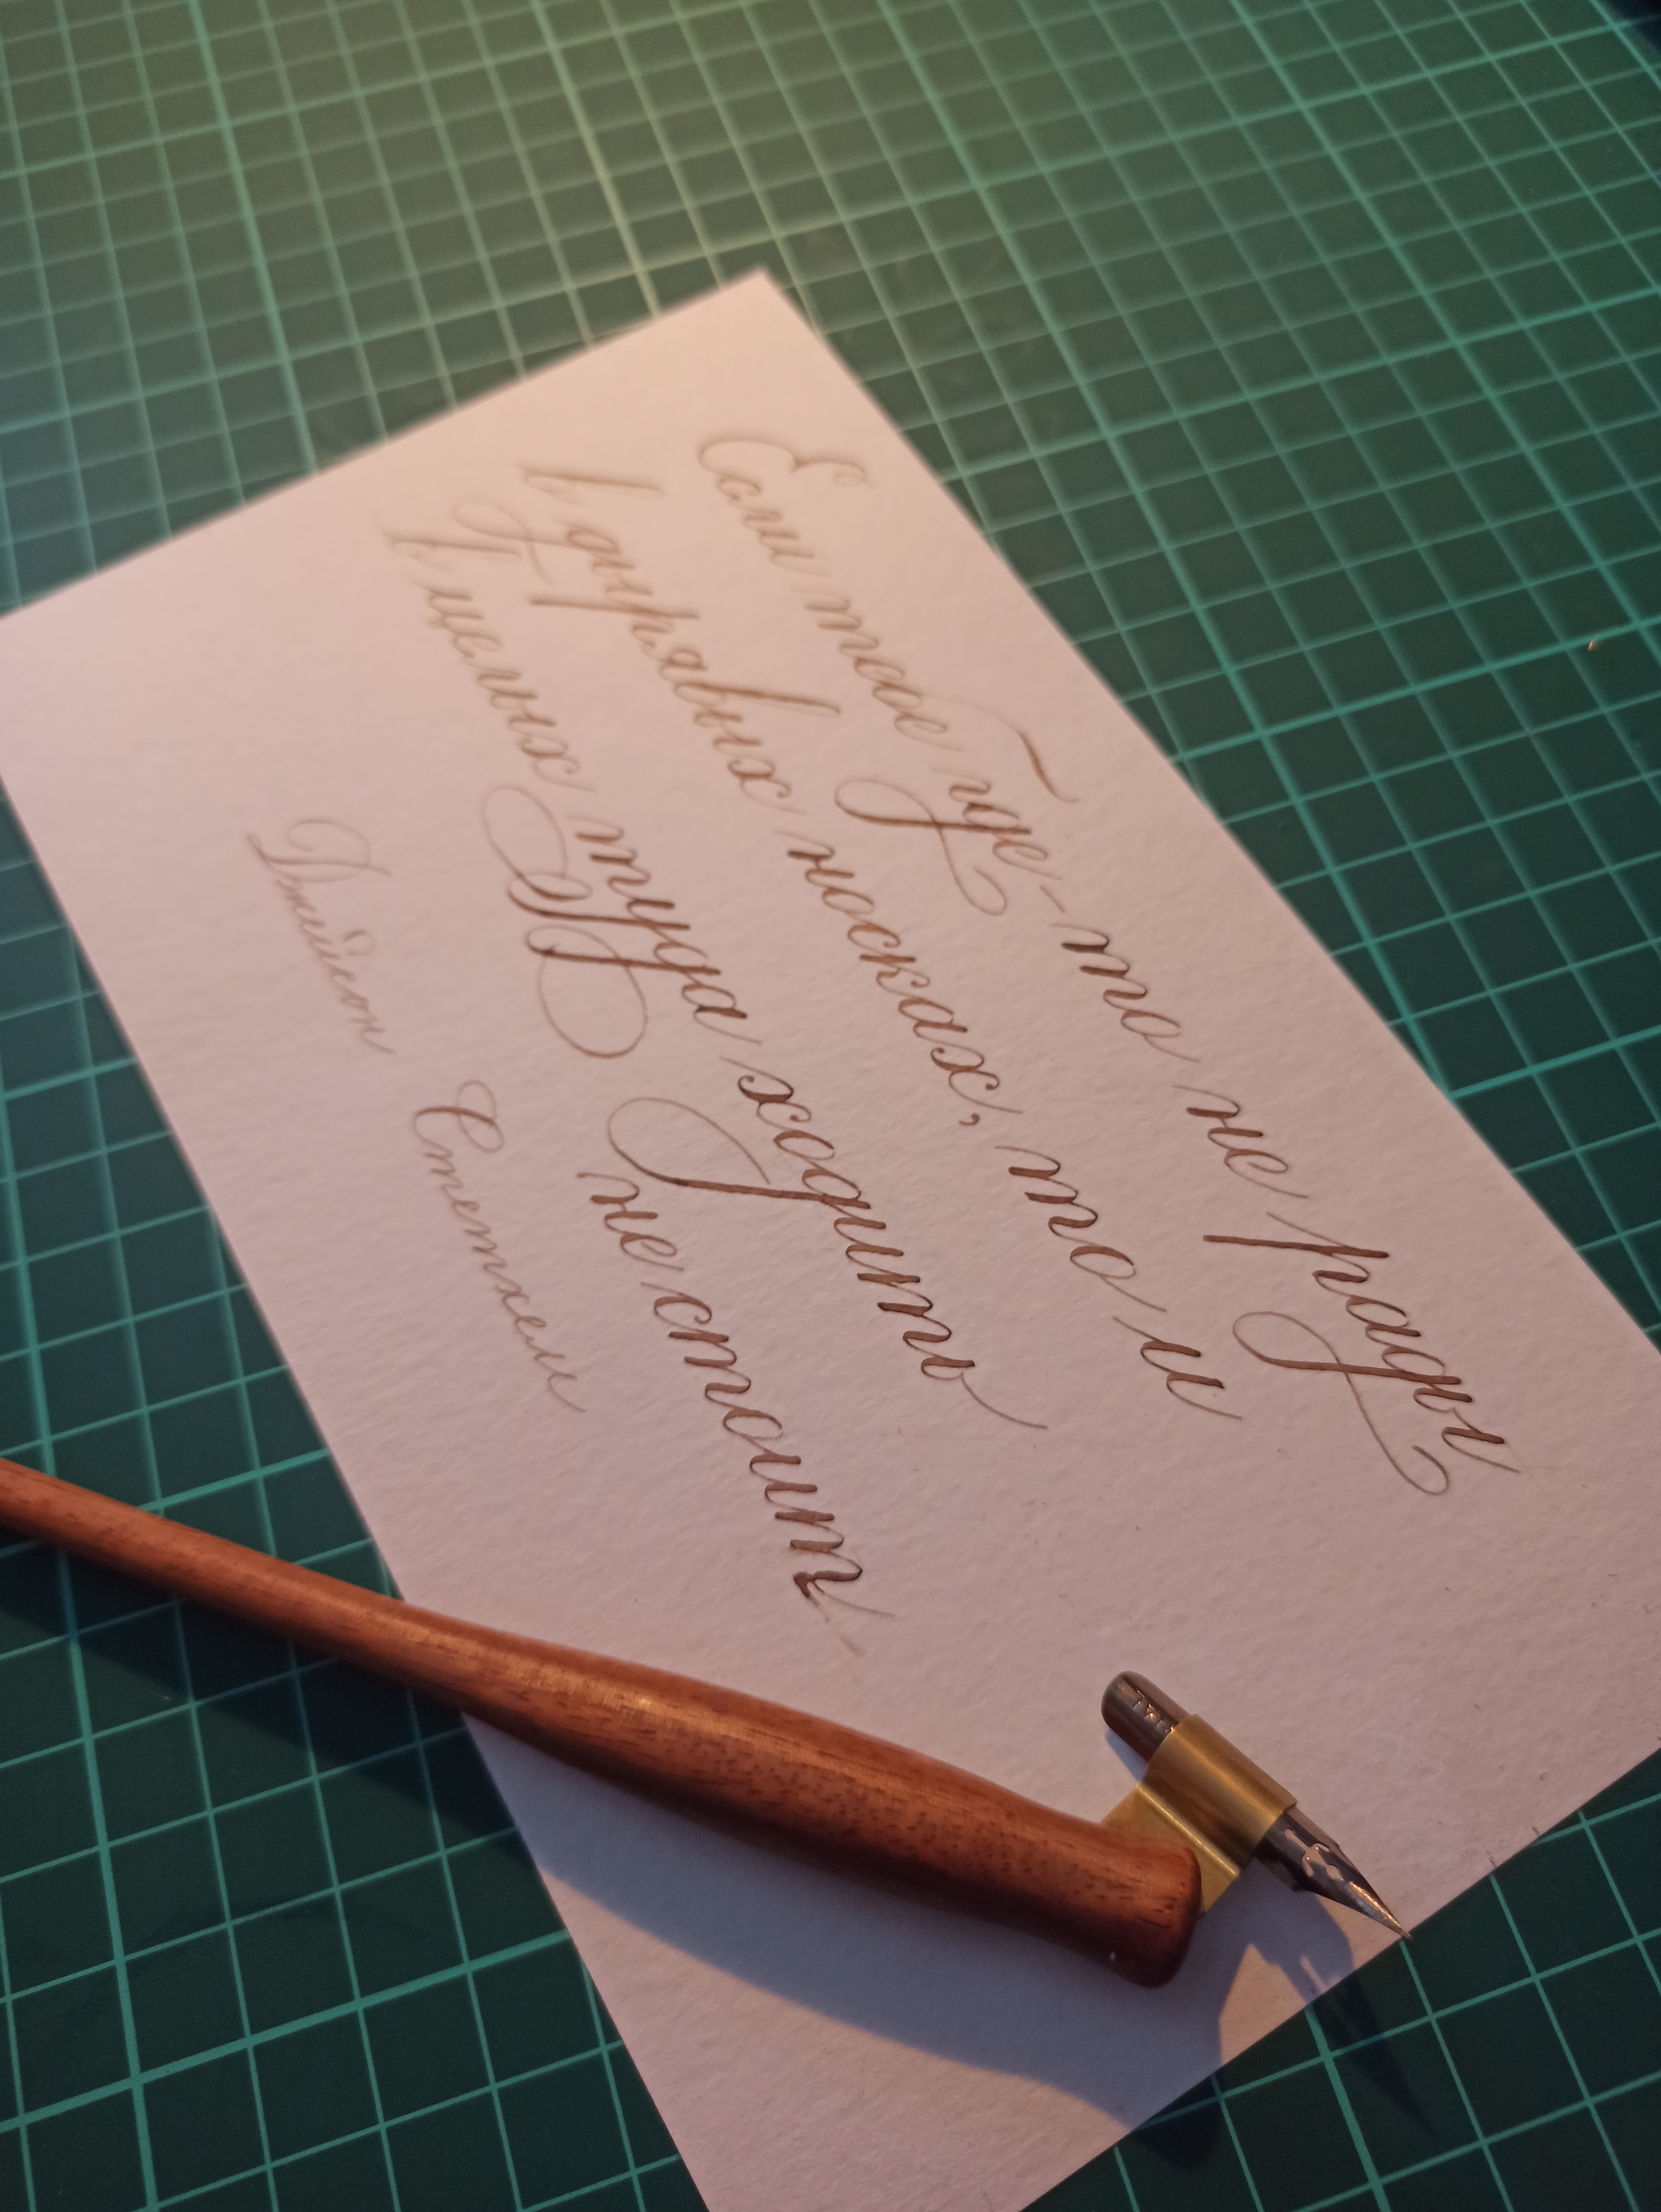 Если тебе где-то не рады
в дырявых носках, то и
в целых туда ходить
не стоит
Джейсон Стетхем